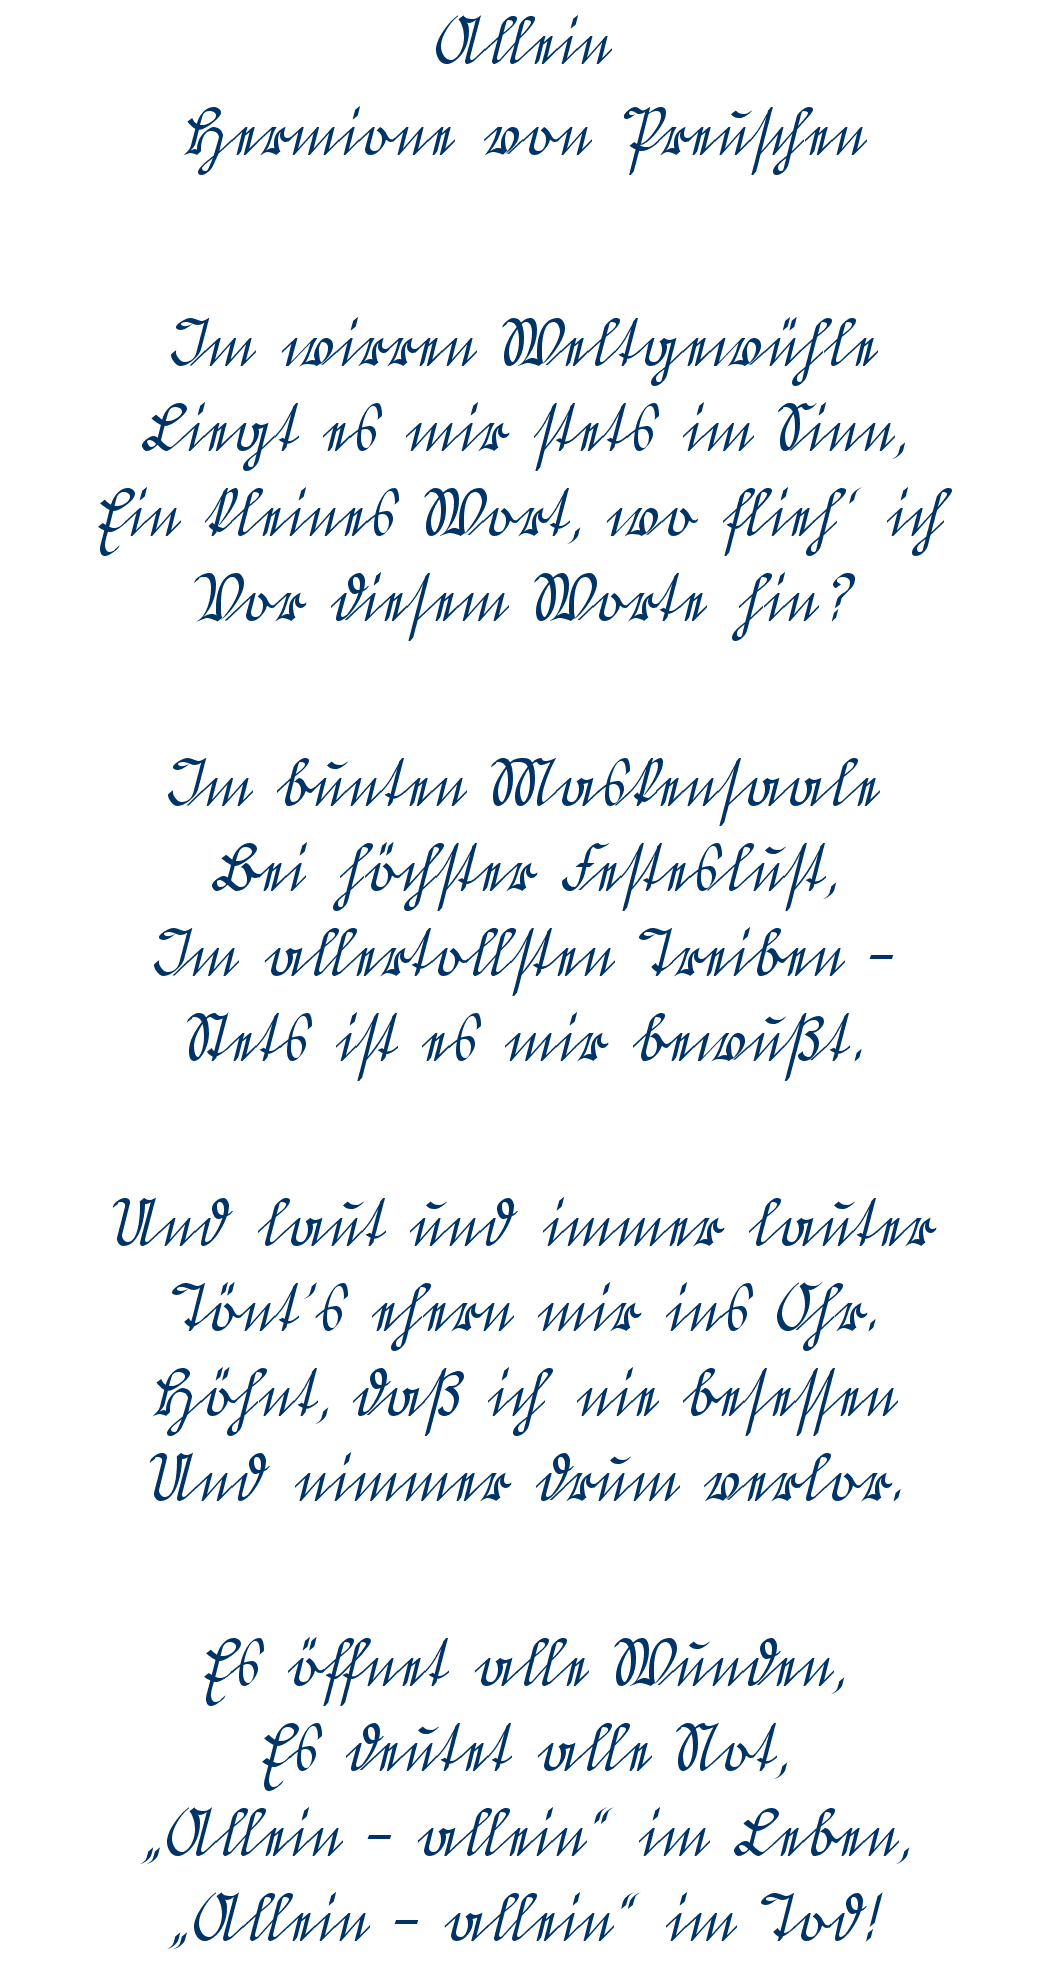 Allein
Hermione von Preuschen
Im wirren Weltgewühle
Liegt es mir stets im Sinn,
Ein kleines Wort, wo flieh' ich
Vor diesem Worte hin?
Im bunten Maskensaale
Bei höchster Festeslust,
Im allertollsten Treiben –
Stets ist es mir bewußt.
Und laut und immer lauter
Tönt's ehern mir ins Ohr.
Höhnt, daß ich nie besessen
Und nimmer drum verlor.
Es öffnet alle Wunden,
Es deutet alle Not,
„Allein – allein“ im Leben,
„Allein – allein“ im Tod!